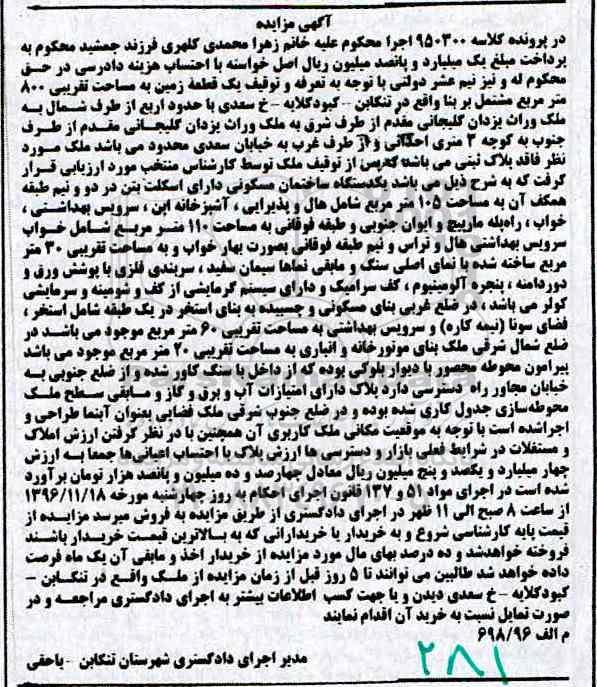 آگهی مزایده
در پرونده کلاسه ۹۵۰۳۰۰ اجرا محکوم علیه خانم زهرا محمدی کلهری فرزند جمشید محکوم به
پرداخت مبلغ یک میلیارد و پانصد میلیون ریال اصل خواسته با احتساب هزینه دادرسی در حق
محکوم له و نیز نیم عشر دولتی با توجه به تعرفه و توقیف یک قطعه زمین به مساحت تقریبی ۸۰۰
متر مربع مشتمل بر بنا واقع در تنکابن – کبودکلایه –خ سعدی با حدود اربع از طرف شمال به
ملک وراث یزدان گلیجانی مقدم از طرف شرق به ملک وراث یزدان گلیجانی مقدم از طرف
جنوب به کوچه ۳ متری احداثی و از طرف غرب به خیابان سعدی محدود می باشد ملک مورد
نظر فاقد پلاک ثبتی می باشد که پس از توقیف ملک توسط کارشناس منتخب مورد ارزیابی قرار
گرفت که به شرح ذیل می باشد یکدستگاه ساختمان مسکونی دارای اسکلت بتن در دو و نیم طبقه
همکف آن به مساحت ۱۰۵ متر مربع شامل هال و پذیرایی ، آشپزخانه اپن ، سرویس بهداشتی ،
خواب ، راه‌پله مارپیچ و ایوان جنوبی و طبقه فوقانی به مساحت ۱۱۰ متر مربع شامل خواب
سرویس بهداشتی هال و تراس و نیم طبقه فوقانی بصورت بهار خواب و به مساحت تقریبی ۳۰ متر
مربع ساخته شده با نمای اصلی سنگ و مابقی نماها سیمان سفید ، سربندی فلزی با پوشش ورق و
دوردامنه ، پنجره آلومینیوم ، کف سرامیک و دارای سیستم گرمایشی از کف و شومینه و سرمایشی
کولر می باشد ، در ضلع غربی بنای مسکونی و چسبیده به بنای استخر در یک طبقه شامل استخر ،
فضای سونا (نیمه کاره) و سرویس بهداشتی به مساحت تقریبی ۶۰ متر مربع موجود می باشد در
ضلع شمال شرقی ملک بنای موتورخانه و انباری به مساحت تقریبی ۲۰ متر مربع موجود می باشد
پیرامون محوطه محصور با دیوار بلوکی بوده که از داخل با سنگ کاور شده و از ضلع جنوبی به
خیابان مجاور راه دسترسی دارد پلاک دارای امتیازات آب و برق و گاز و مابقی سطح ملک
محوطه‌سازی جدول کاری شده بوده و در ضلع جنوب شرقی ملک فضایی بعنوان آبنما طراحی و
اجراشده است با توجه به موقعیت مکانی ملک کاربری آن همچنین با در نظر گرفتن ارزش املاک
و مستقلات در شرایط فعلی بازار و دسترسی ها ارزش پلاک با احتساب اعیانی‌ها جمعا به ارزش
چهار میلیارد و یکصد و پنج میلیون ریال معادل چهارصد و ده میلیون و پانصد هزار تومان برآورد
شده است در اجرای مواد ۵۱ و ۱۳۷ قانون اجرای احکام به روز چهارشنبه مورخه ۱۳۹۶/۱۱/۱۸
از ساعت ۸ صبح الی ۱۱ ظهر در اجرای دادگستری از طریق مزایده به فروش میرسد مزایده از
قیمت پایه کارشناسی شروع و به خریدار یا خریدارانی که به بالاترین قیمت خریدار باشند
فروخته خواهدشد و ده درصد بهای مال مورد مزایده از خریدار اخذ و مابقی آن یک ماه فرصت
داده خواهد شد طالبین می توانند تا ۵ روز قبل از زمان مزایده از ملک واقع در تنکابن –
کبودکلایه –خ سعدی دیدن و یا جهت کسب اطلاعات بیشتر به اجرای دادگستری مراجعه و در
صورت تمایل نسبت به خرید آن اقدام نمایند
م الف ۶۹۸/۹۶
مدیر اجرای دادگستری شهرستان تنکابن –یاحقی
۲۸۱